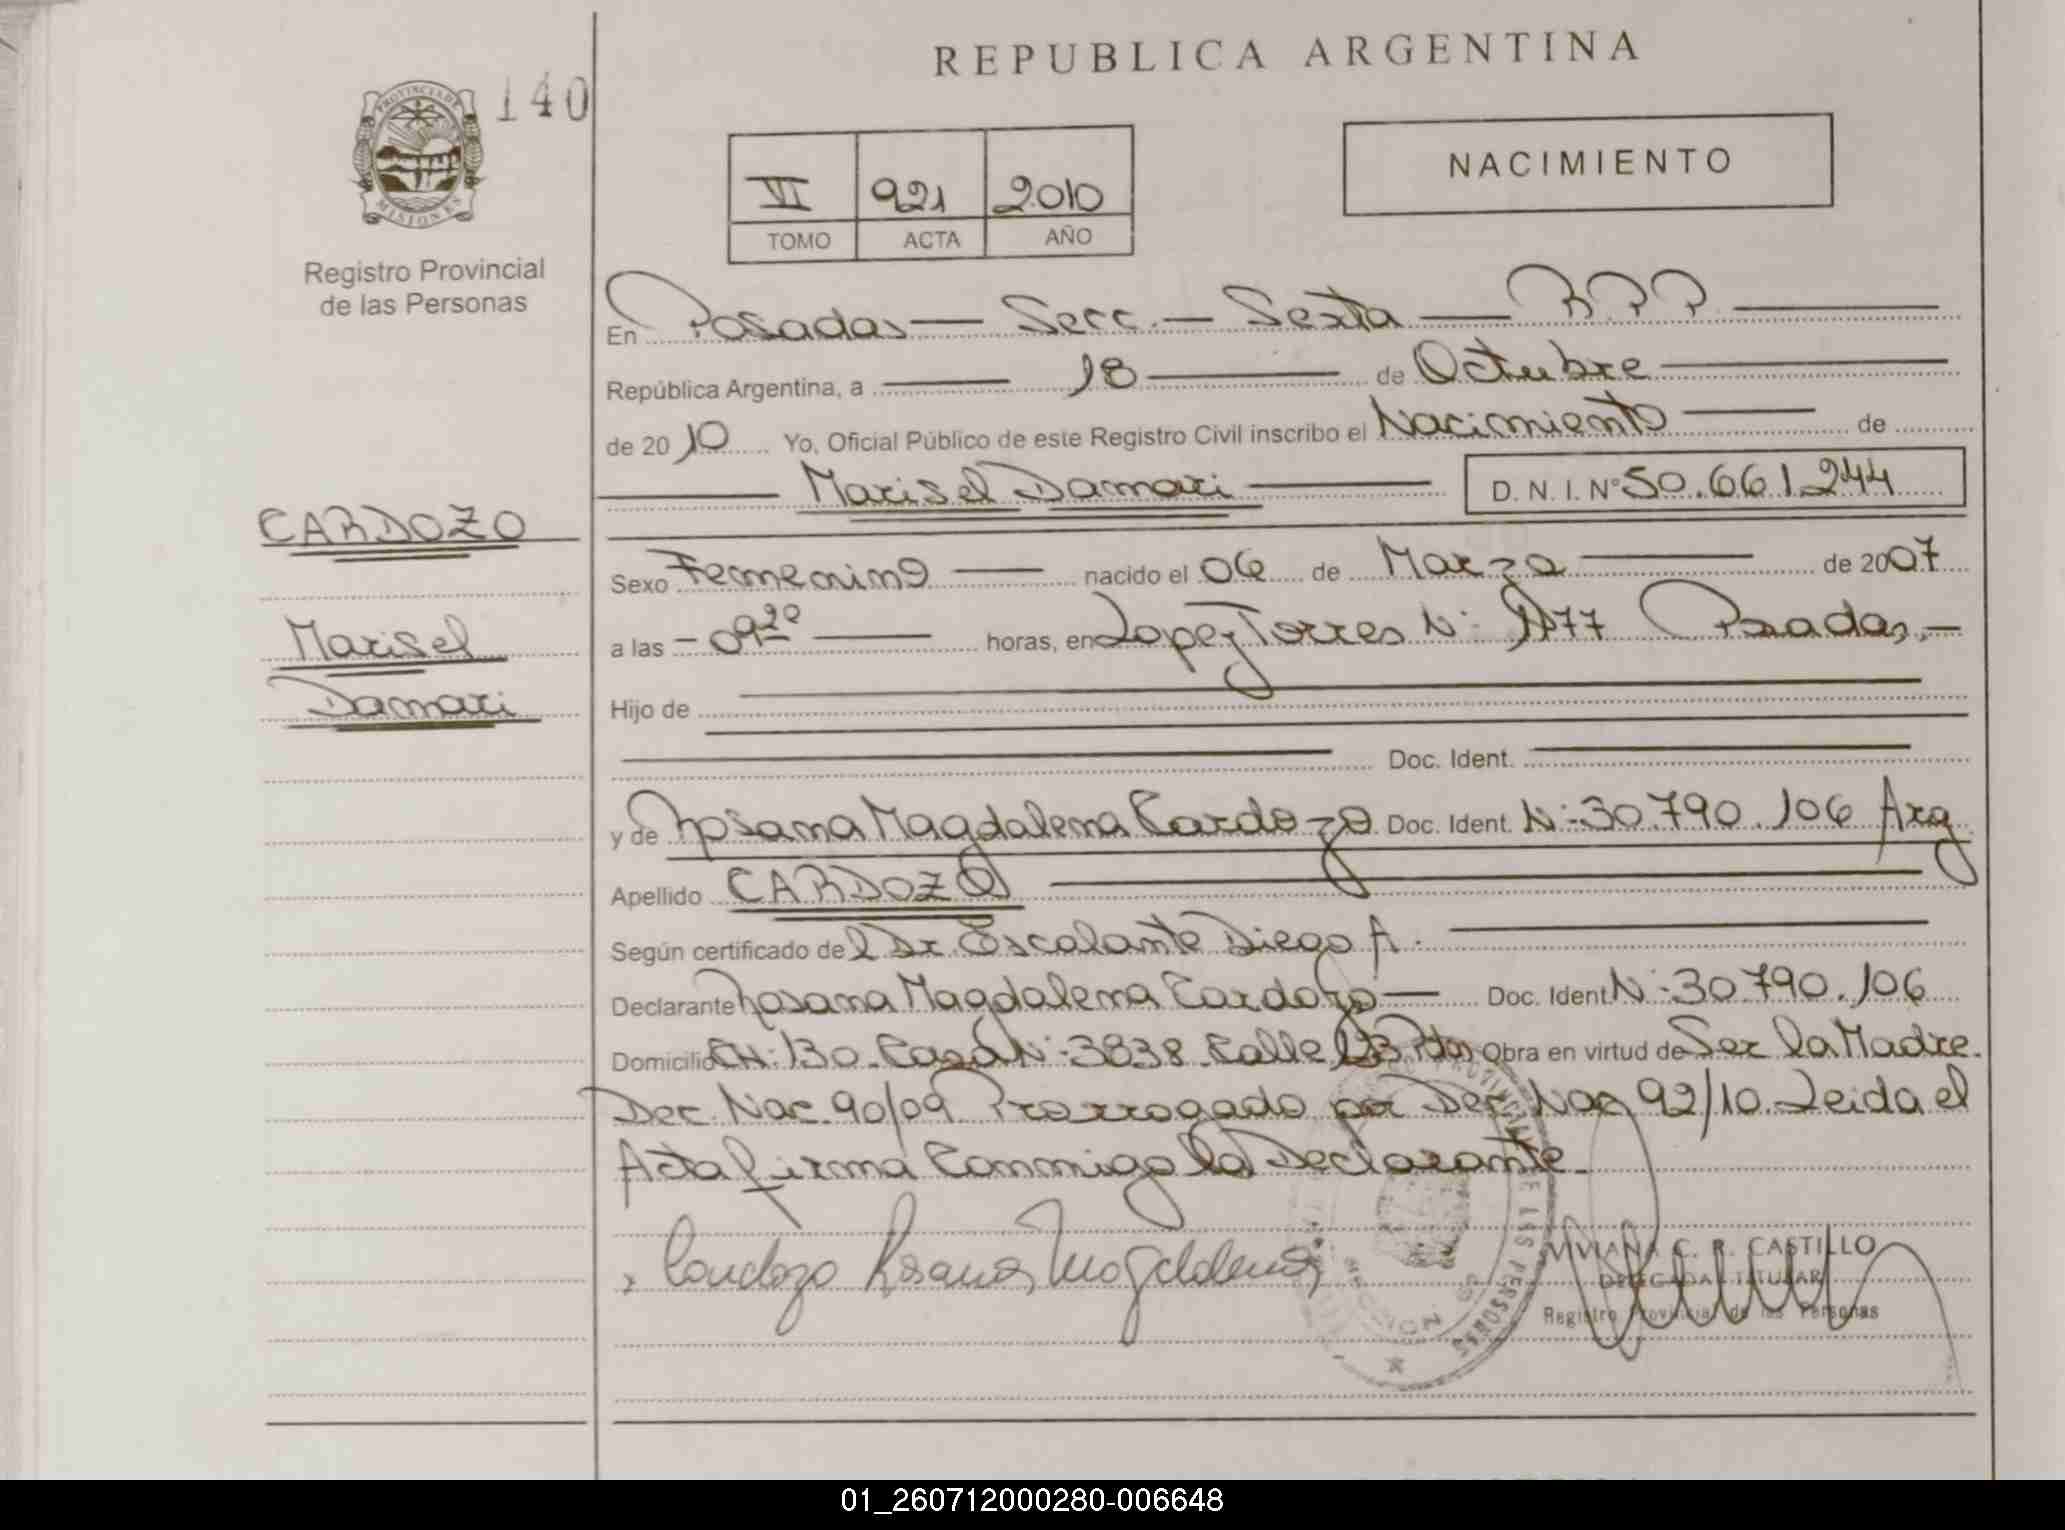 REPUBLICA ARGENTINA
140
PROVINCIA DE MISIONES
Registro Provincial
de las Personas
VI 921 2010
TOMO ACTA AÑO
NACIMIENTO
En Posadas — Secc. — Sexta — R.P.P.
República Argentina, a 18 de Octubre
de 2010 Yo, Oficial Público de este Registro Civil inscribo el Nacimiento de
Marisel Damari D. N. I. Nº 50.661.244
CARDOZO
Marisel
Damari
Sexo Femenino nacido el 06 de Marzo de 2007
a las - 09 20 horas, en Lopez Torres N: 1177 Posadas.-
Hijo de
Doc. Ident.
y de Rosana Magdalena Cardozo Doc. Ident. N:-30.790.106 Arg
Apellido CARDOZO
Según certificado del Dr. Escalante Diego A.
Declarante Rosana Magdalena Cardozo — Doc. Ident. N:-30.790.106
Domicilio CH:130-Casa N:-3838 Calle 123 Pdas Obra en virtud de Ser la Madre.
Dec. Nac. 90/09 Prorrogado por Dec. Nac 92/10. Leida el
Acta firma Conmigo la Declarante.
Cardozo Rosana Magdalena
VIVIANA C. R. CASTILLO
DELEGADA TITULAR
Registro Provincial de las Personas
01_260712000280-006648